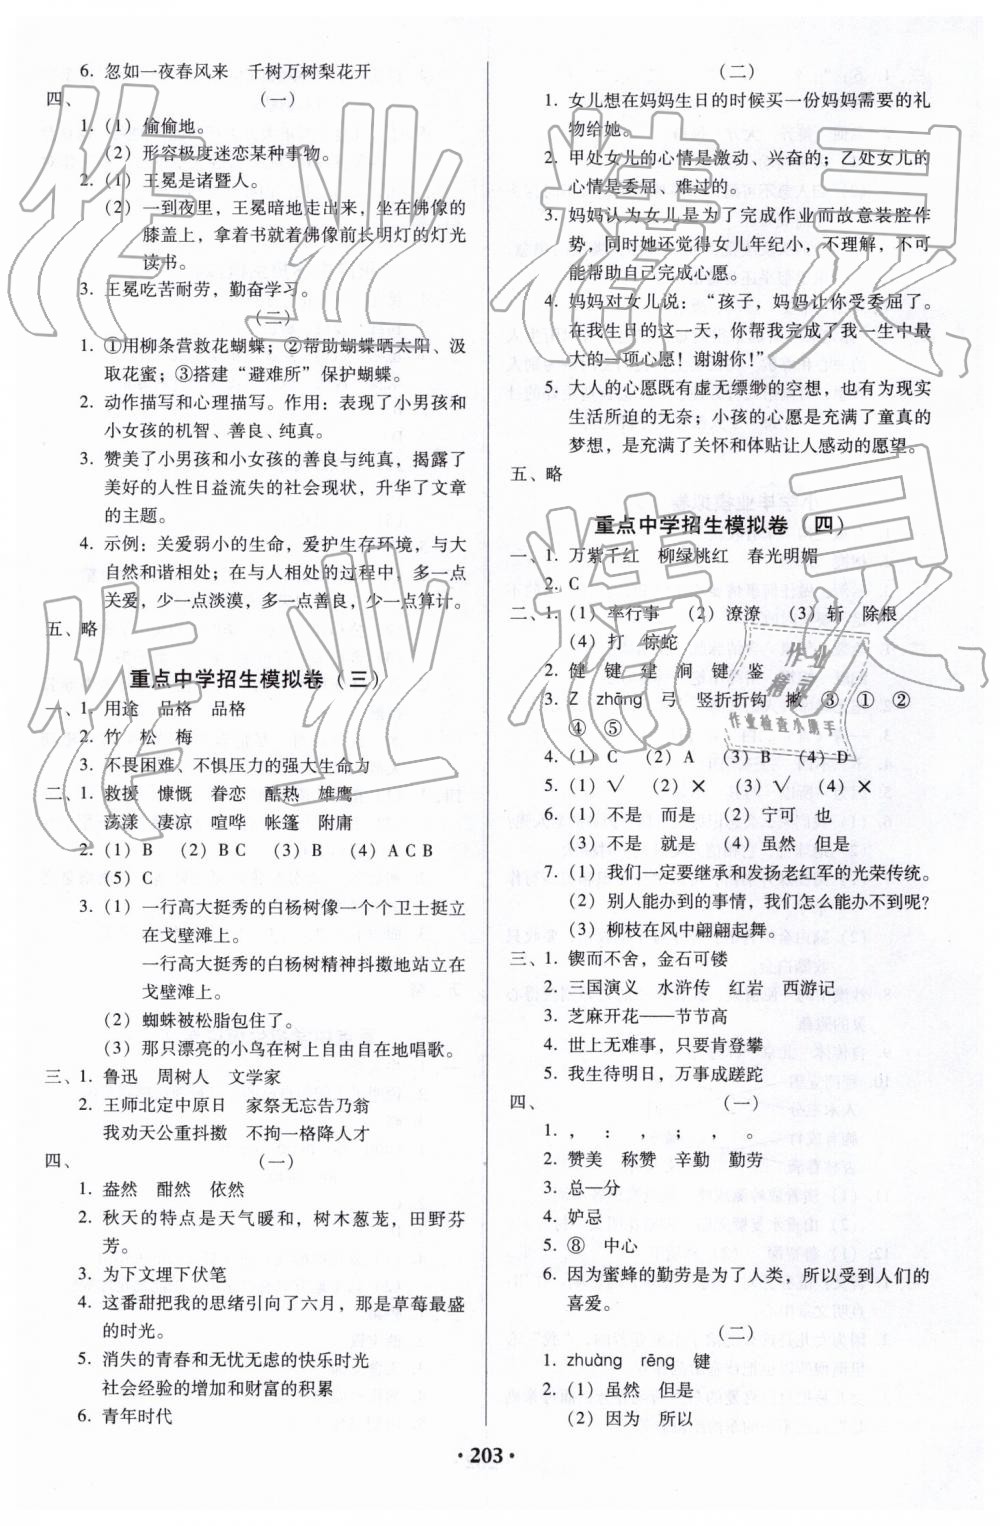 6. 忽如一夜春风来　千树万树梨花开
四、（一）
1.（1）偷偷地。
（2）形容极度迷恋某种事物。
2.（1）王冕是诸暨人。
（2）一到夜里，王冕暗地走出来，坐在佛像的
膝盖上，拿着书就着佛像前长明灯的灯光
读书。
3. 王冕吃苦耐劳，勤奋学习。
（二）
1. ①用柳条营救花蝴蝶；②帮助蝴蝶晒太阳、汲
取花蜜；③搭建“避难所”保护蝴蝶。
2. 动作描写和心理描写。作用：表现了小男孩和
小女孩的机智、善良、纯真。
3. 赞美了小男孩和小女孩的善良与纯真，揭露了
美好的人性日益流失的社会现状，升华了文章
的主题。
4. 示例：关爱弱小的生命，爱护生存环境，与大
自然和谐相处；在与人相处的过程中，多一点
关爱，少一点淡漠，多一点善良，少一点算计。
五、略
重点中学招生模拟卷（三）
一、1. 用途　品格　品格
2. 竹　松　梅
3. 不畏困难、不惧压力的强大生命力
二、1. 救援　慷慨　眷恋　酷热　雄鹰
荡漾　凄凉　喧哗　帐篷　附庸
2.（1）B　（2）B C　（3）B　（4）A C B
（5）C
3.（1）一行高大挺秀的白杨树像一个个卫士挺立
在戈壁滩上。
一行高大挺秀的白杨树精神抖擞地站立在
戈壁滩上。
（2）蜘蛛被松脂包住了。
（3）那只漂亮的小鸟在树上自由自在地唱歌。
三、1. 鲁迅　周树人　文学家
2. 王师北定中原日　家祭无忘告乃翁
我劝天公重抖擞　不拘一格降人才
四、（一）
1. 盎然　酣然　依然
2. 秋天的特点是天气暖和，树木葱茏，田野芬
芳。
3. 为下文埋下伏笔
4. 这番甜把我的思绪引向了六月，那是草莓最盛
的时光。
5. 消失的青春和无忧无虑的快乐时光
社会经验的增加和财富的积累
6. 青年时代
（二）
1. 女儿想在妈妈生日的时候买一份妈妈需要的礼
物给她。
2. 甲处女儿的心情是激动、兴奋的；乙处女儿的
心情是委屈、难过的。
3. 妈妈认为女儿是为了完成作业而故意装腔作
势，同时她还觉得女儿年纪小，不理解，不可
能帮助自己完成心愿。
4. 妈妈对女儿说：“孩子，妈妈让你受委屈了。
在我生日的这一天，你帮我完成了我一生中最
大的一项心愿！谢谢你！”
5. 大人的心愿既有虚无缥缈的空想，也有为现实
生活所迫的无奈；小孩的心愿是充满了童真的
梦想，是充满了关怀和体贴让人感动的愿望。
五、略
重点中学招生模拟卷（四）
一、1. 万紫千红　柳绿桃红　春光明媚
2. C
二、1.（1）率行事　（2）潦潦　（3）斩　除根
（4）打　惊蛇
2. 健　键　建　涧　键　鉴
3. Z　zhāng　弓　竖折折钩　撇　③　①　②
④　⑤
4.（1）C　（2）A　（3）B　（4）D
5.（1）√　（2）×　（3）√　（4）×
6.（1）不是　而是　（2）宁可　也
（3）不是　就是　（4）虽然　但是
7.（1）我们一定要继承和发扬老红军的光荣传统。
（2）别人能办到的事情，我们怎么能办不到呢?
（3）柳枝在风中翩翩起舞。
三、1. 锲而不舍，金石可镂
2. 三国演义　水浒传　红岩　西游记
3. 芝麻开花——节节高
4. 世上无难事，只要肯登攀
5. 我生待明日，万事成蹉跎
四、（一）
1. ，　：　，　；　，　。
2. 赞美　称赞　辛勤　勤劳
3. 总—分
4. 妒忌
5. ⑧　中心
6. 因为蜜蜂的勤劳是为了人类，所以受到人们的
喜爱。
（二）
1. zhuàng　rēng　键
2.（1）虽然　但是
（2）因为　所以
·203·
作业精灵
作业精灵
作业
精灵
作业检查小助手